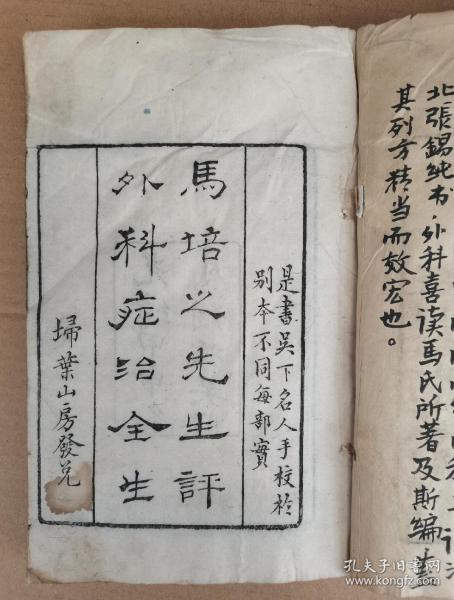 是書吳下名人手校於
別本不同每部實
馬培之先生評
外科症治全生
埽葉山房發兌
北張錫纯书，外科喜读馬氏所著及斯編
其列方精当而效宏也。
孔夫子旧书网
www.kongfz.com